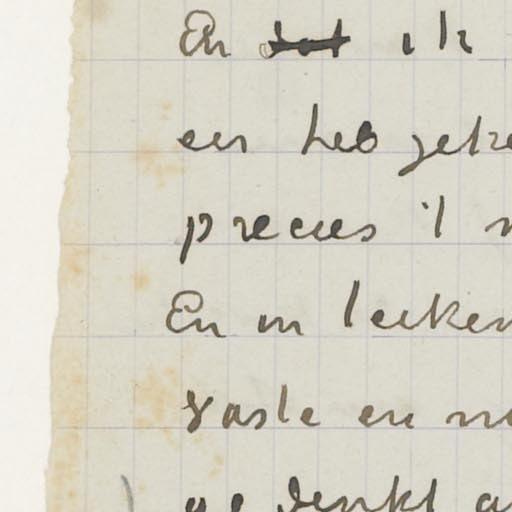 En dat ik
een heb gek
precies 't
En in leeken
vaste en
ge denkt